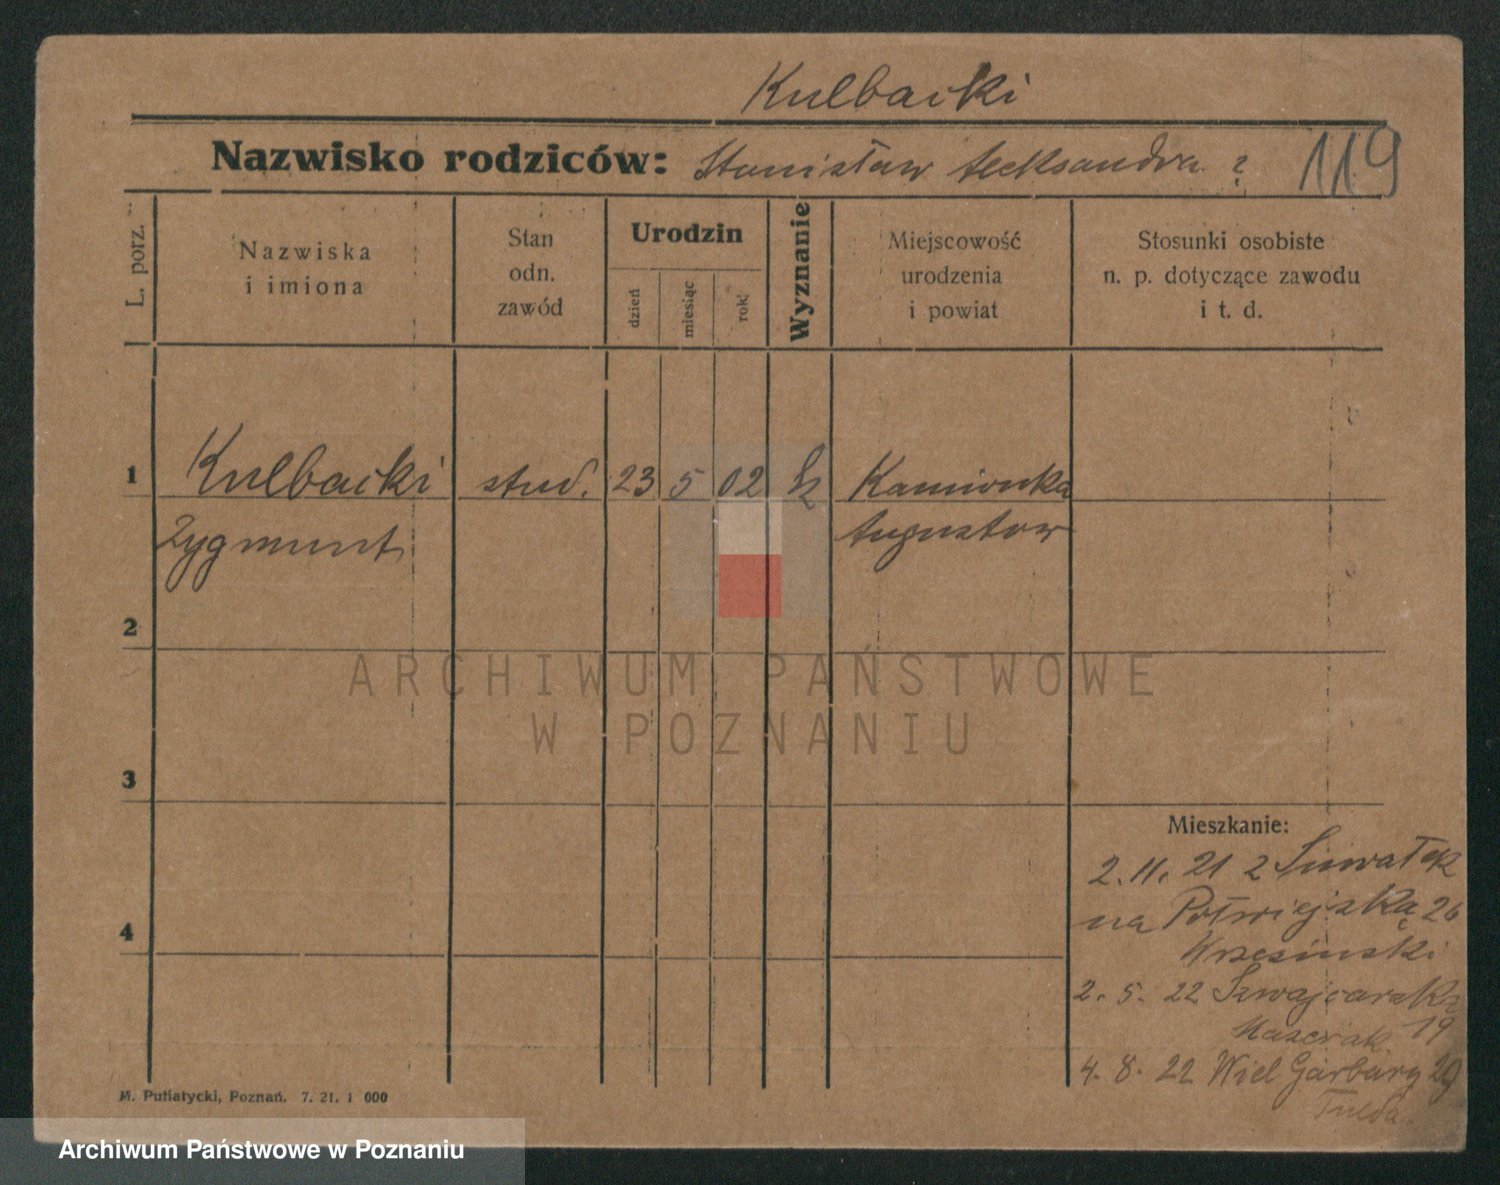 Kulbacki
Nazwisko rodziców: Stanisław Aleksandra ?
119
L. porz.
Nazwiska
i imiona
Stan
odn.
zawód
Urodzin
dzień
miesiąc
rok
Wyznanie
Miejscowość
urodzenia
i powiat
Stosunki osobiste
n. p. dotyczące zawodu
i t. d.
1 Kulbacki stud. 23 5 02 Kamionka
Zygmunt Augustow
2
3
4
Mieszkanie:
2. 11. 21 z Suwałek
na Półwiejską 26
Wrzesinski
2. 5. 22 Szwajcarska
19
4. 8. 22 Wiel Garbary 29
M. Putiatycki, Poznań. 7. 21. 1 000
ARCHIWUM PAŃSTWOWE
W POZNANIU
Archiwum Państwowe w Poznaniu